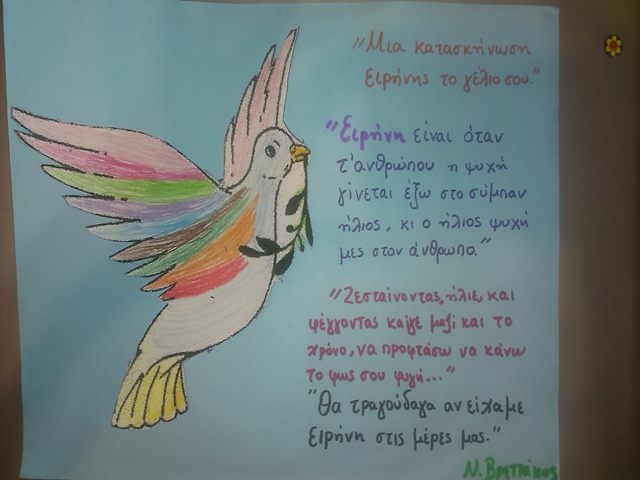 "Μια κατασκήνωση
ειρήνης το γέλιο σου."
"Ειρήνη είναι όταν
τ'ανθρώπου η ψυχή
γίνεται έξω στο σύμπαν
ήλιος, κι ο ήλιος ψυχή
μες στον άνθρωπο."
"Ζεσταίνοντας, ήλιε, και
φέγγοντας καίγε μαζί και το
χρόνο, να προφτάσω να κάνω
το φως σου ψυχή..."
"Θα τραγούδαγα αν είχαμε
ειρήνη στις μέρες μας."
Ν. Βρεττάκος